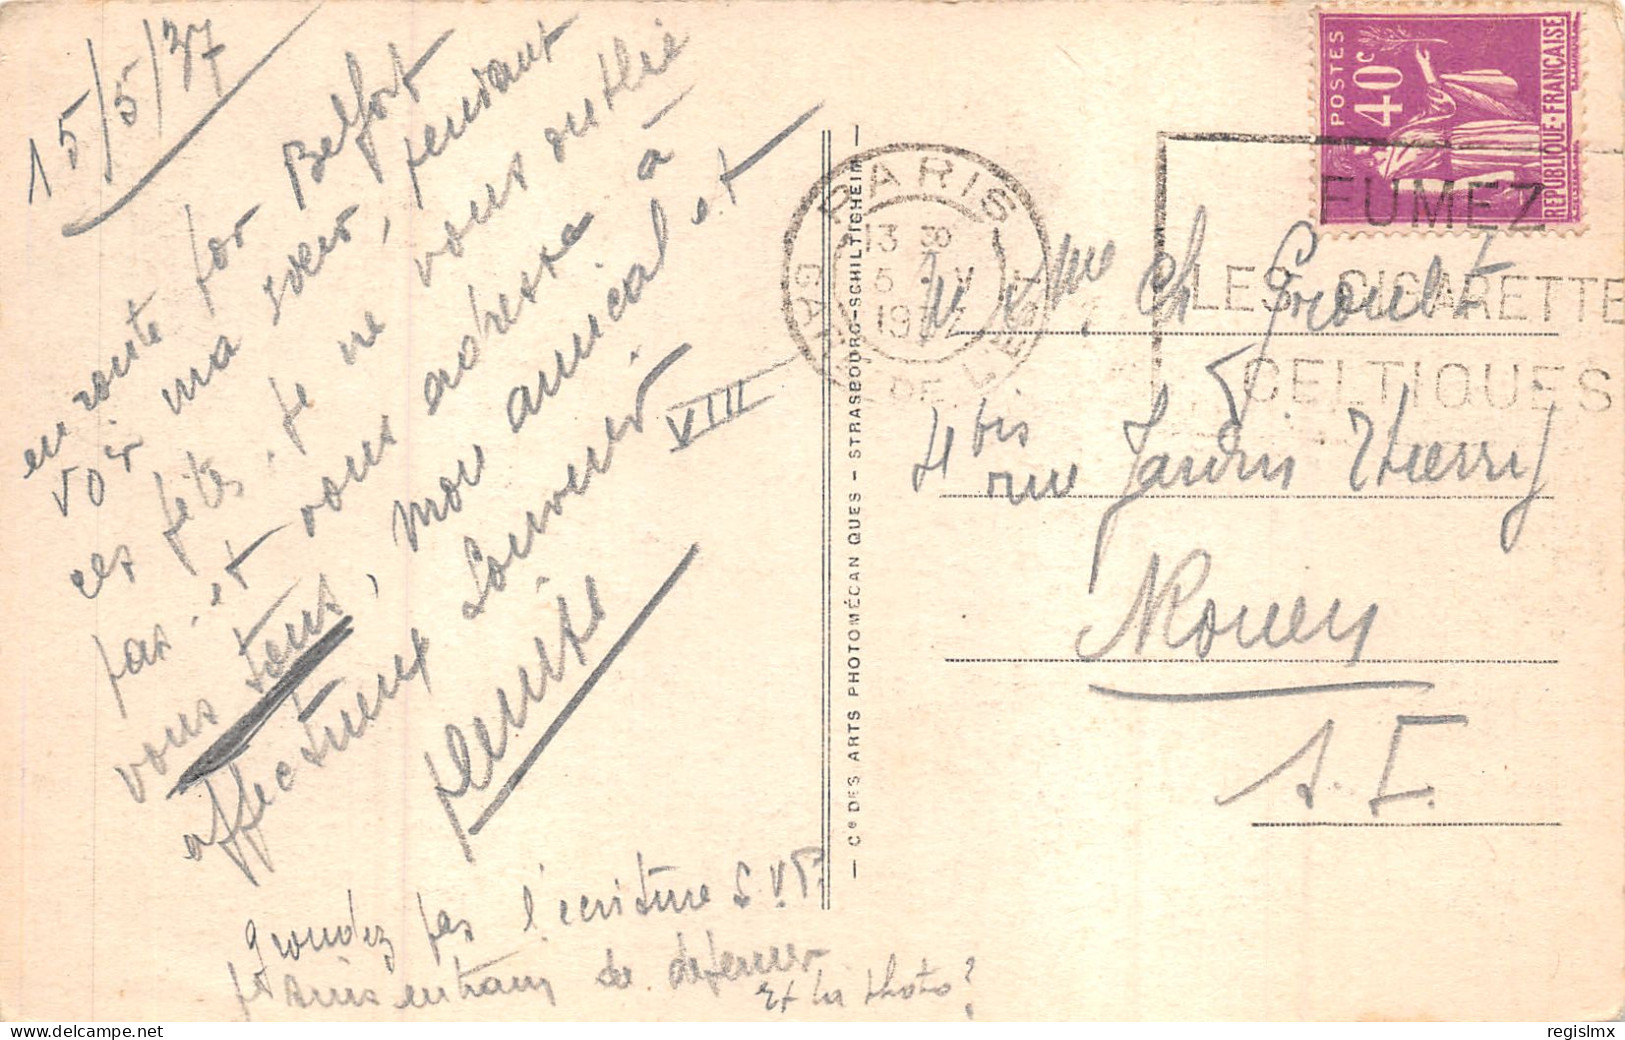 15/5/37
en route pour Belfort
voir ma soeur, pendant
ces fêtes. je ne vous oublie
pas. et vous adresse à
vous tous, mon amical et
affectueux souvenir
VIII
grondez pas l'écriture S.V.P.
suis en train de
Et la photo?
Cie DES ARTS PHOTOMÉCANIQUES - STRASBOURG-SCHILTIGHEIM
PARIS
GARE DE L'EST
13 8
POSTES
40c
RÉPUBLIQUE-FRANÇAISE
FUMEZ
LES CIGARETTE
CELTIQUES
M & Mme Ch
4 bis
rue Jardin Thierry
Rouen
S. I.
regislmx